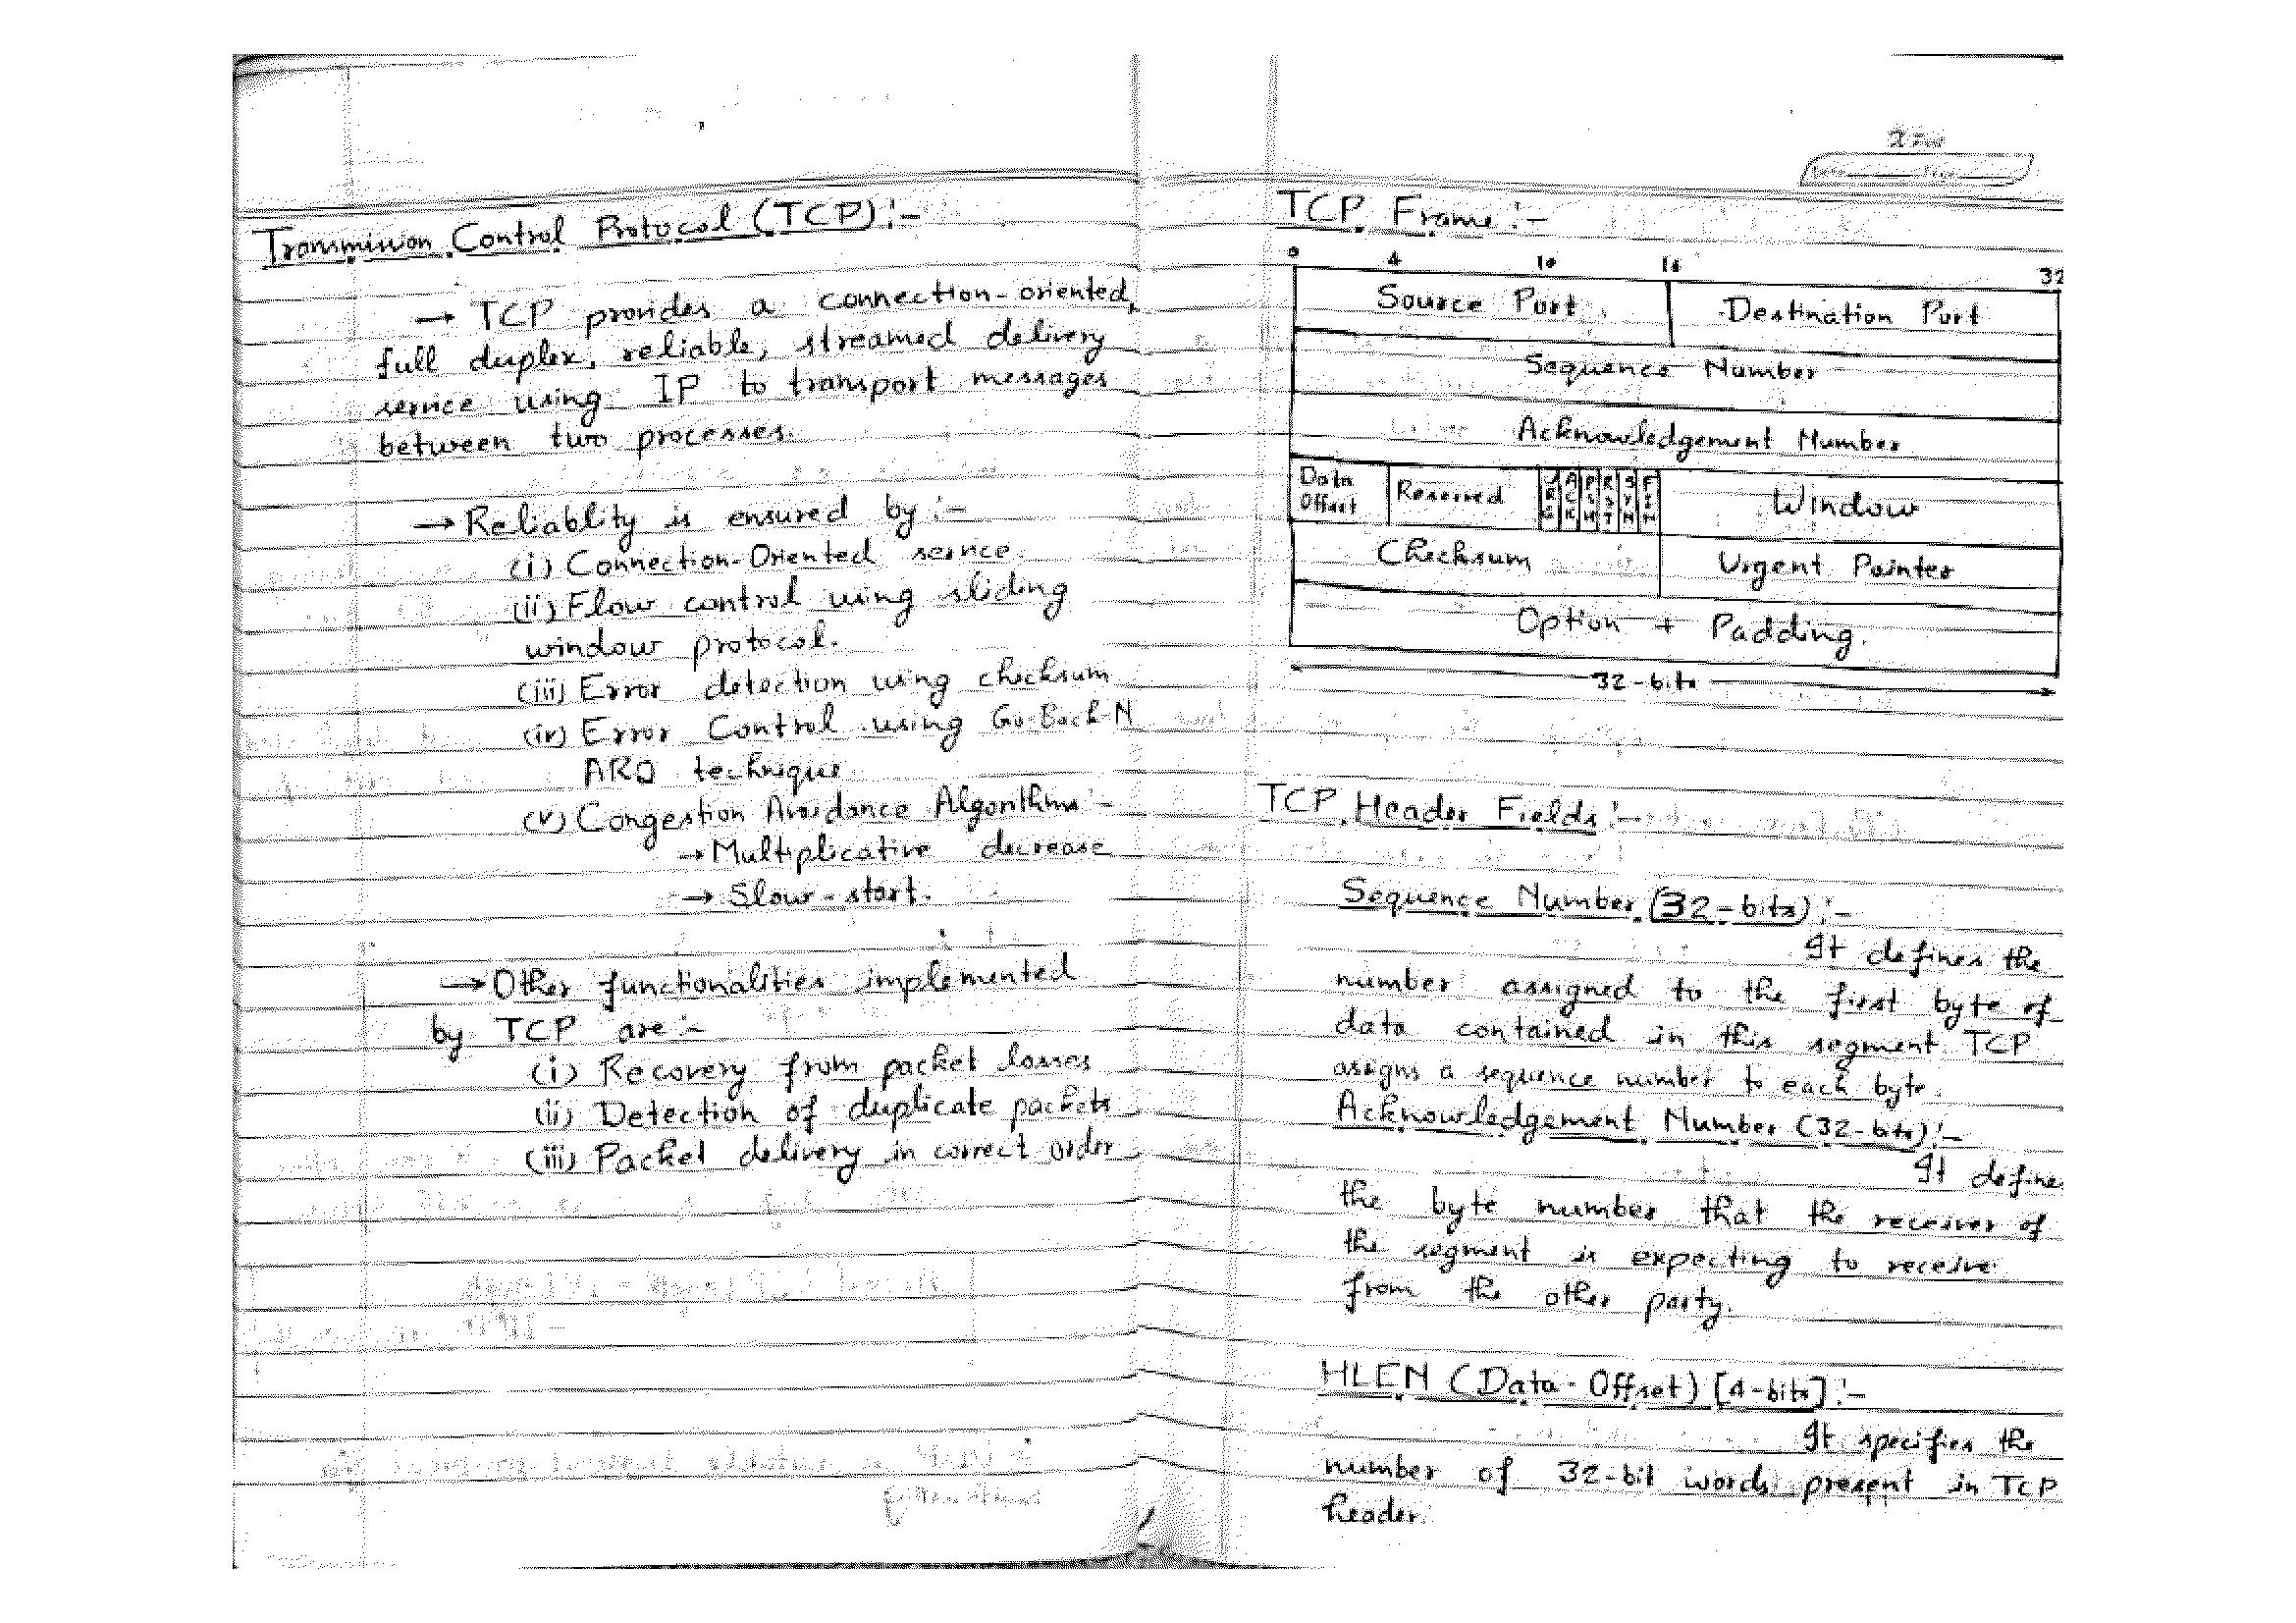 Transmission Control Protocol (TCP):-
→ TCP provides a connection-oriented,
full duplex, reliable, streamed delivery
service using IP to transport messages
between two processes.
→ Reliablity is ensured by :-
(i) Connection-Oriented service.
(ii) Flow control using sliding
window protocol.
(iii) Error detection using checksum
(iv) Error Control using Go-Back-N
ARQ technique
(v) Congestion Avoidance Algorithms:-
→ Multiplicative decrease
→ Slow-start.
→ Other functionalities implemented
by TCP are :-
(i) Recovery from packet losses
(ii) Detection of duplicate packets
(iii) Packet delivery in correct order
TCP Frame :-
0 4 10 16 32
Source Port Destination Port
Sequence Number
Acknowledgement Number
Data Offset Reserved URG ACK PSH RST SYN FIN Window
Checksum Urgent Pointer
Option + Padding.
32-bits
TCP Header Fields :-
Sequence Number (32-bits) :-
It defines the
number assigned to the first byte of
data contained in this segment. TCP
assigns a sequence number to each byte.
Acknowledgement Number (32-bits) :-
It define
the byte number that the receiver of
the segment is expecting to receive
from the other party.
HLEN (Data-Offset) [4-bits] :-
It specifies the
number of 32-bit words present in TCP
header.